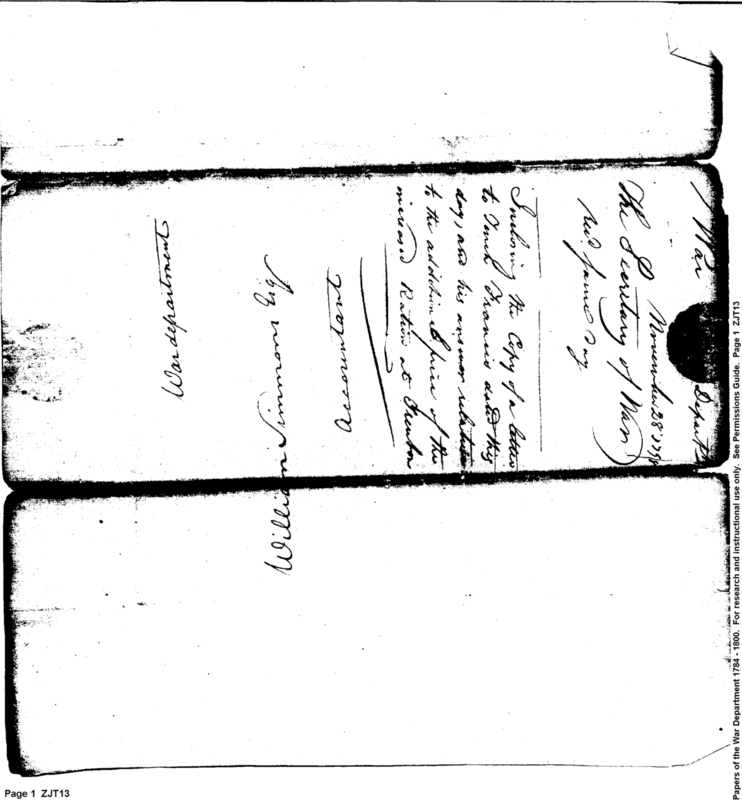 War Departt
November 28th 1798
The Secretary of War
Recd. same day
Inclosing the Copy of a letter
to Tench Francis dated this
day, and his answer relative
to the additional price of the
increased Ration at Trenton
William Simmons Esqr
Accountant
War department
Page 1 ZJT13
Papers of the War Department 1784 - 1800. For research and instructional use only. See Permissions Guide. Page 1 ZJT13